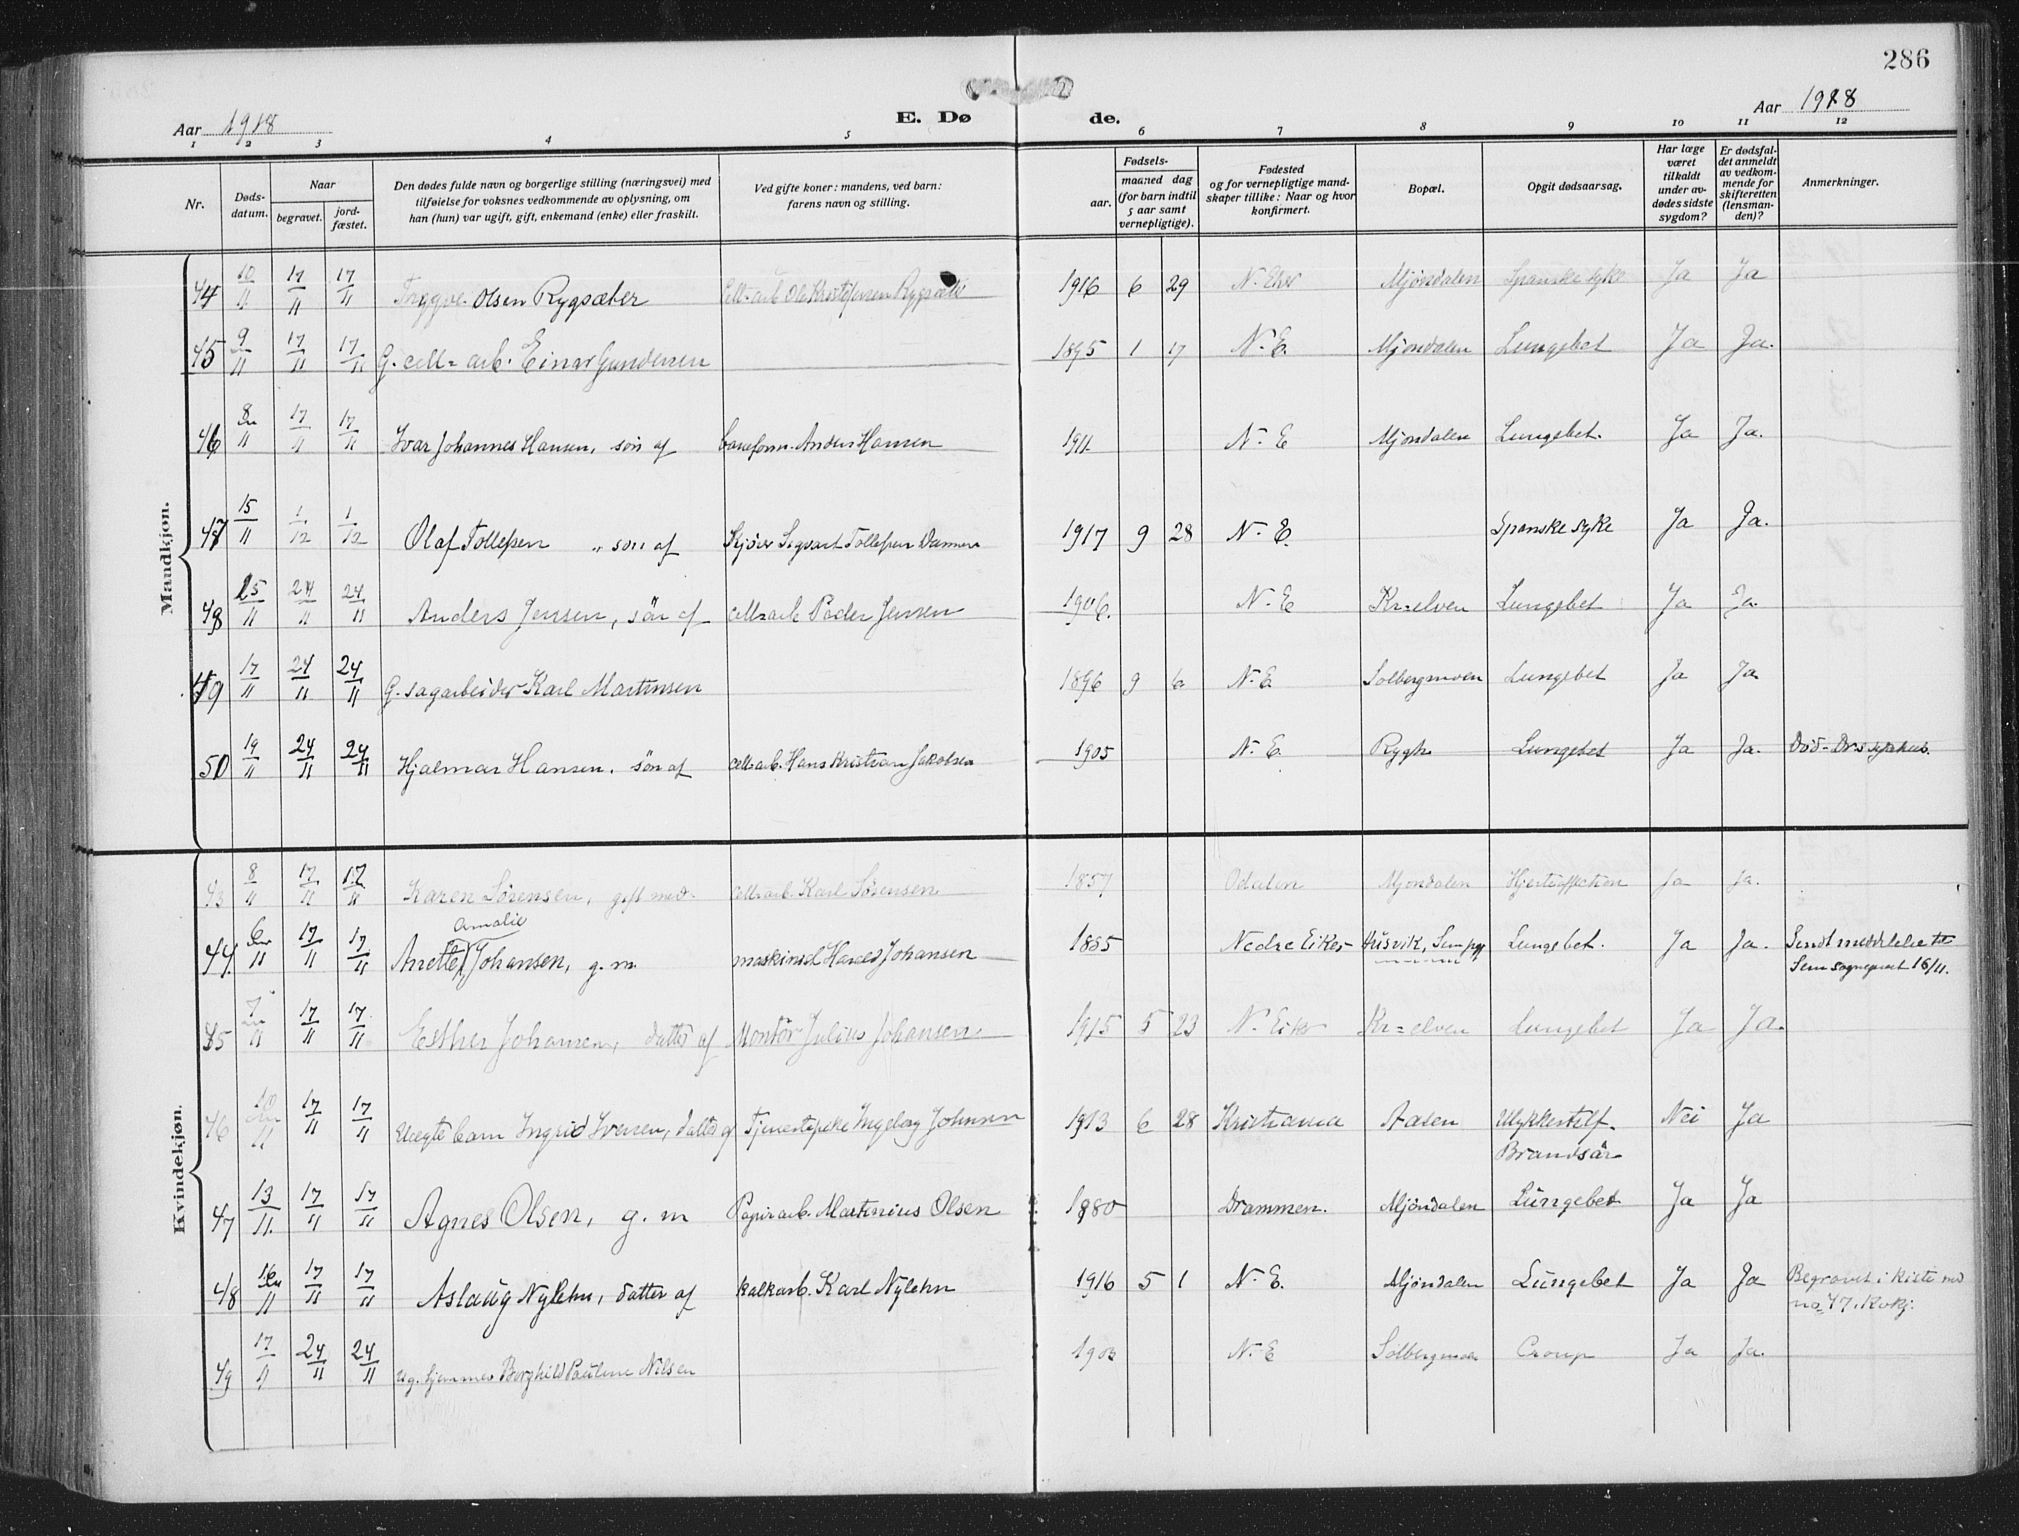 286
Aar 1918
E. Døde.
Aar 1918
1 2 3 4 5 6 7 8 9 10 11 12
Nr.
Døds-datum.
Naar
begravet.
jord-fæstet.
Den dødes fulde navn og borgerlige stilling (næringsvei) med
tilføielse for voksnes vedkommende av oplysning, om
han (hun) var ugift, gift, enkemand (enke) eller fraskilt.
Ved gifte koner: mandens, ved barn:
farens navn og stilling.
Fødsels-
aar.
maaned dag
(for barn indtil
5 aar samt
vernepligtige).
Fødested
og for vernepligtige mand-
skaper tillike: Naar og hvor
konfirmert.
Bopæl.
Opgit dødsaarsag.
Har læge
været
tilkaldt
under av-
dødes sidste
sygdom?
Er dødsfal-
det anmeldt
av vedkom-
mende for
skifteretten
(lensman-
den)?
Anmerkninger.
Mandkjøn.
44 10/11 17/11 17/11 Tryggve Olsen Rygsæter Cell-arb. Ole Kristofersen Rygsæter 1916 6 29 N. Eker Mjøndalen Spanske syke Ja Ja
45 9/11 17/11 17/11 G. cell=arb. Einar Gundersen 1895 1 17 N. E. Mjøndalen Lungebet Ja Ja.
46 8/11 17/11 17/11 Ivar Johannes Hansen, søn af baneform. Anders Hansen 1911 N. E Mjøndalen Lungebet. Ja Ja.
47 15/11 1/12 1/12 Olaf Tollefsen " søn af Kjører Sigvart Tollefsen Dammen 1917 9 28 N. E. Spanske syke Ja Ja.
48 15/11 24/11 24/11 Anders Jensen, søn af cell=arb Peder Jensen 1906. N. E Kr=elven Lungebet Ja Ja.
49 17/11 24/11 24/11 G. sagarbeider Karl Martinsen 1896 9 6 N. E. Solbergmoen Lungebet Ja Ja
50 19/11 24/11 24/11 Hjalmar Hansen, søn af cell=arb. Hans Kristian Jakobsen 1905 N. E. Rygh Lungebet Ja Ja. Død Dr.s sykehus.
Kvindekjøn.
43 8/11 17/11 17/11 Karen Sørensen, gift med cell=arb Karl Sørensen 1857 Odalen Mjøndalen Hjerteaffection Ja Ja.
44. 6/11 17/11 17/11 Anette Amalie Johansen, g. m. maskinist Harald Johansen 1885 Nedre Eiker Husvik, Sem pgj Lungebet. Ja Ja. Sendt meddelelse til
Sem sogneprest 16/11.
45 7/11 17/11 17/11 Esther Johansen, datter af Montør Julius Johansen 1915 5 23 N. Eiker Kr=elven Lungebet Ja Ja.
46 10/11 17/11 17/11 Uegte barn Ingrid Iversen, datter af Tjenestepike Ingeborg Johnsen 1913 6 28 Kristiania Aasen Ulykkestilf.
Brandsår Nei Ja
47 13/11 17/11 17/11 Agnes Olsen, g. m Papirarb. Martinius Olsen 1880 Drammen. Mjøndalen Lungebet Ja Ja
48 16/11 17/11 17/11 Aslaug Nylehn, datter af kalkarb. Karl Nylehn 1916 5 1 N. E. Mjøndalen Lungebet Ja Ja Begravet i kiste med
no 47. Kvkj.
49 17/11 24/11 24/11 Ug. hjemmev Borghild Pauline Nilsen 1903 N. E Solbergmoen Croup Ja Ja.